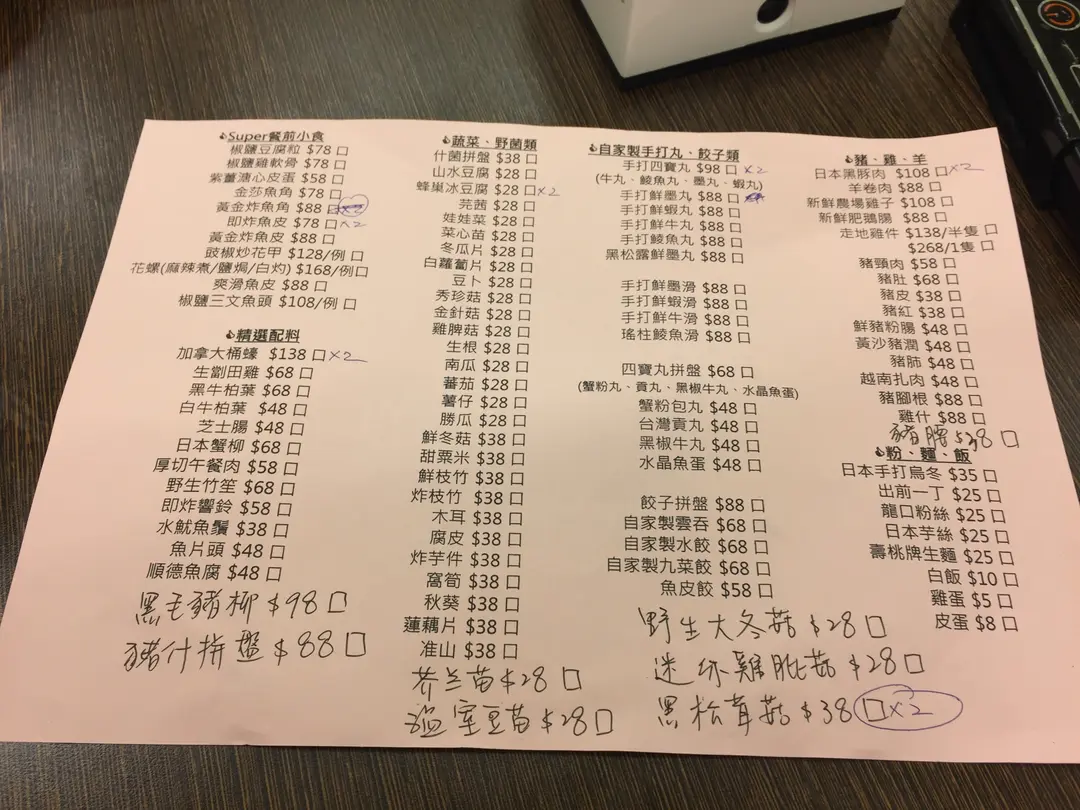 Super餐前小食
椒鹽豆腐粒 $78 口
椒鹽雞軟骨 $78 口
紫薑溏心皮蛋 $58 口
金莎魚角 $78 口
黃金炸魚角 $88 口x2
即炸魚皮 $78 口x2
黃金炸魚皮 $88 口
豉椒炒花甲 $128/例 口
花螺(麻辣煮/鹽焗/白灼) $168/例口
爽滑魚皮 $88 口
椒鹽三文魚頭 $108/例 口
精選配料
加拿大桶蠔 $138 口x2
生劏田雞 $68 口
黑牛柏葉 $68 口
白牛柏葉 $48 口
芝士腸 $48 口
日本蟹柳 $68 口
厚切午餐肉 $58 口
野生竹笙 $68 口
即炸響鈴 $58 口
水魷魚鬚 $38 口
魚片頭 $48 口
順德魚腐 $48 口
黑毛豬柳 $98 口
豬什拼盤 $88 口
蔬菜、野菌類
什菌拼盤 $38 口
山水豆腐 $28 口
蜂巢冰豆腐 $28 口x2
芫茜 $28 口
娃娃菜 $28 口
菜心苗 $28 口
冬瓜片 $28 口
白蘿蔔片 $28 口
豆卜 $28 口
秀珍菇 $28 口
金針菇 $28 口
雞脾菇 $28 口
生根 $28 口
南瓜 $28 口
蕃茄 $28 口
薯仔 $28 口
勝瓜 $28 口
鮮冬菇 $38 口
甜粟米 $38 口
鮮枝竹 $38 口
炸枝竹 $38 口
木耳 $38 口
腐皮 $38 口
炸芋件 $38 口
窩筍 $38 口
秋葵 $38 口
蓮藕片 $38 口
准山 $38 口
芥兰苗 $28 口
温室豆苗 $28 口
自家製手打丸、餃子類
手打四寶丸 $98 口 x2
(牛丸、鯪魚丸、墨丸、蝦丸)
手打鮮墨丸 $88 口
手打鮮蝦丸 $88 口
手打鮮牛丸 $88 口
手打鯪魚丸 $88 口
黑松露鮮墨丸 $88 口
手打鮮墨滑 $88 口
手打鮮蝦滑 $88 口
手打鮮牛滑 $88 口
瑤柱鯪魚滑 $88 口
四寶丸拼盤 $68 口
(蟹粉丸、貢丸、黑椒牛丸、水晶魚蛋)
蟹粉包丸 $48 口
台灣貢丸 $48 口
黑椒牛丸 $48 口
水晶魚蛋 $48 口
餃子拼盤 $88 口
自家製雲吞 $68 口
自家製水餃 $68 口
自家製九菜餃 $68 口
魚皮餃 $58 口
野生大冬菇 $28 口
迷你雞肶菇 $28 口
黑松茸菇 $38 口x2
豬、雞、羊
日本黑豚肉 $108 口x2
羊卷肉 $88 口
新鮮農場雞子 $108 口
新鮮肥鵝腸 $88 口
走地雞件 $138/半隻 口
$268/1隻 口
豬頸肉 $58 口
豬肚 $68 口
豬皮 $38 口
豬紅 $38 口
鮮豬粉腸 $48 口
黃沙豬潤 $48 口
豬肺 $48 口
越南扎肉 $48 口
豬腳根 $88 口
雞什 $88 口
豬腰 口
粉、麵、飯
日本手打烏冬 $35 口
出前一丁 $25 口
龍口粉絲 $25 口
日本芋絲 $25 口
壽桃牌生麵 $25 口
白飯 $10 口
雞蛋 $5 口
皮蛋 $8 口